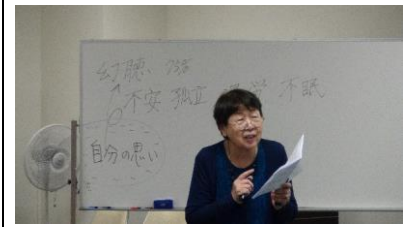 幻聴
不安 孤立 不眠
自分の思い